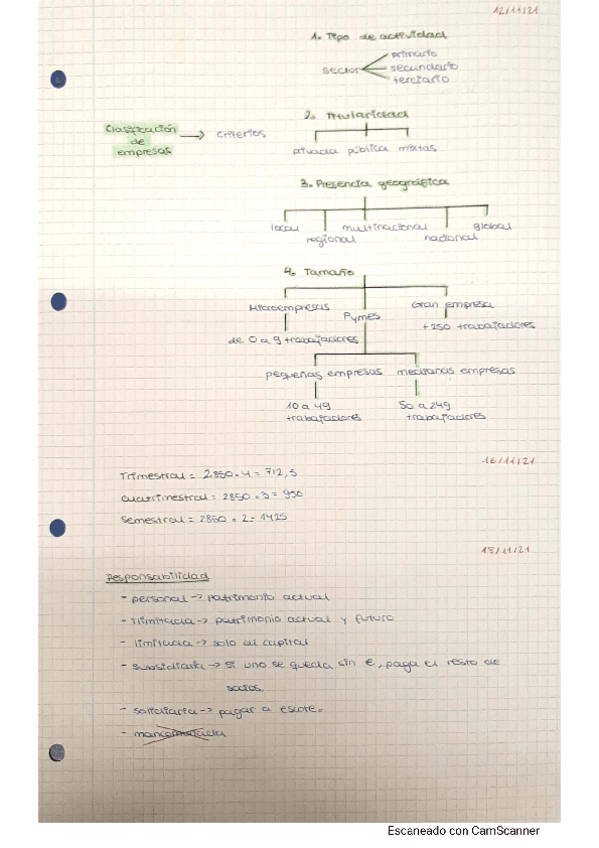 12/11/21
1. Tipo de actividad
primario
sector secundario
terciario
2. Titularidad
Clasificación de empresas → criterios
privada pública mixtas
3. Presencia geográfica
local multinacional global
regional nacional
4. Tamaño
Microempresas Pymes Gran empresa
+250 trabajadores
de 0 a 9 trabajadores
pequeñas empresas medianas empresas
10 a 49 50 a 249
trabajadores trabajadores
16/11/21
Trimestral = 2850 : 4 = 712,5
Cuatrimestral = 2850 : 3 = 950
Semestral = 2850 : 2 = 1425
18/11/21
Responsabilidad
- personal -> patrimonio actual
- Ilimitada -> patrimonio actual y futuro
- limitada -> solo al capital
- subsidiaria -> si uno se queda sin €, paga el resto de
socios.
- solidiaria -> pagar a escote.
- mancomunada
Escaneado con CamScanner